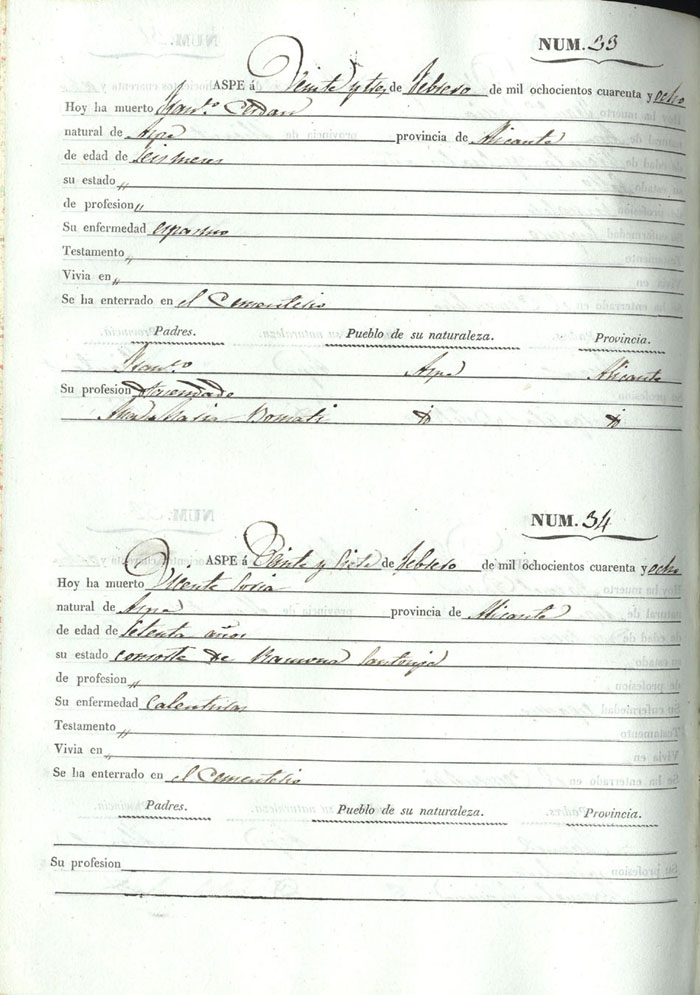 NUM. 33
ASPE á Veinte y tres de Febrero de mil ochocientos cuarenta y ocho
Hoy ha muerto Fran.co Cerdan
natural de Aspe provincia de Alicante
de edad de seis meses
su estado „
de profesion „
Su enfermedad espasmo
Testamento „
Vivia en „
Se ha enterrado en el Cementerio
Padres. Pueblo de su naturaleza. Provincia.
Fran.co Aspe Alicante
Su profesion Hacendado
Ana Maria Bomati id id
NUM. 34
ASPE á Veinte y siete de Febrero de mil ochocientos cuarenta y ocho
Hoy ha muerto Vicente Soria
natural de Aspe provincia de Alicante
de edad de Setenta años
su estado consorte de Ramona Santonja
de profesion „
Su enfermedad Calenturas
Testamento „
Vivia en „
Se ha enterrado en el Cementerio
Padres. Pueblo de su naturaleza. Provincia.
Su profesion